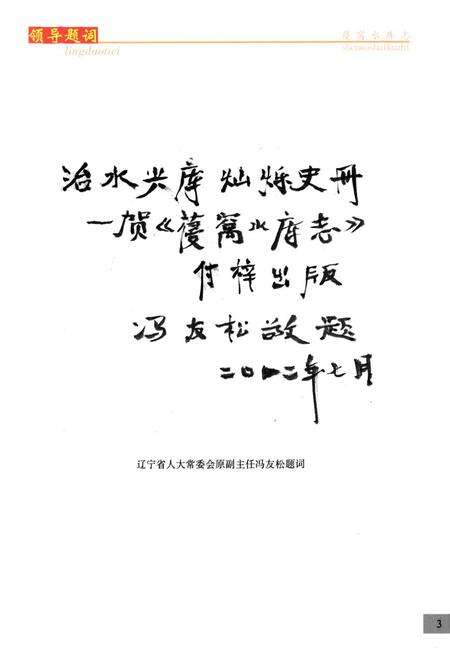 领导题词
lingdaotici
葠窝水库志
shenwoshuikuzhi
治水兴库 灿烁史册
—贺《葠窝水库志》
付梓出版
冯友松敬题
二〇一二年七月
辽宁省人大常委会原副主任冯友松题词
3